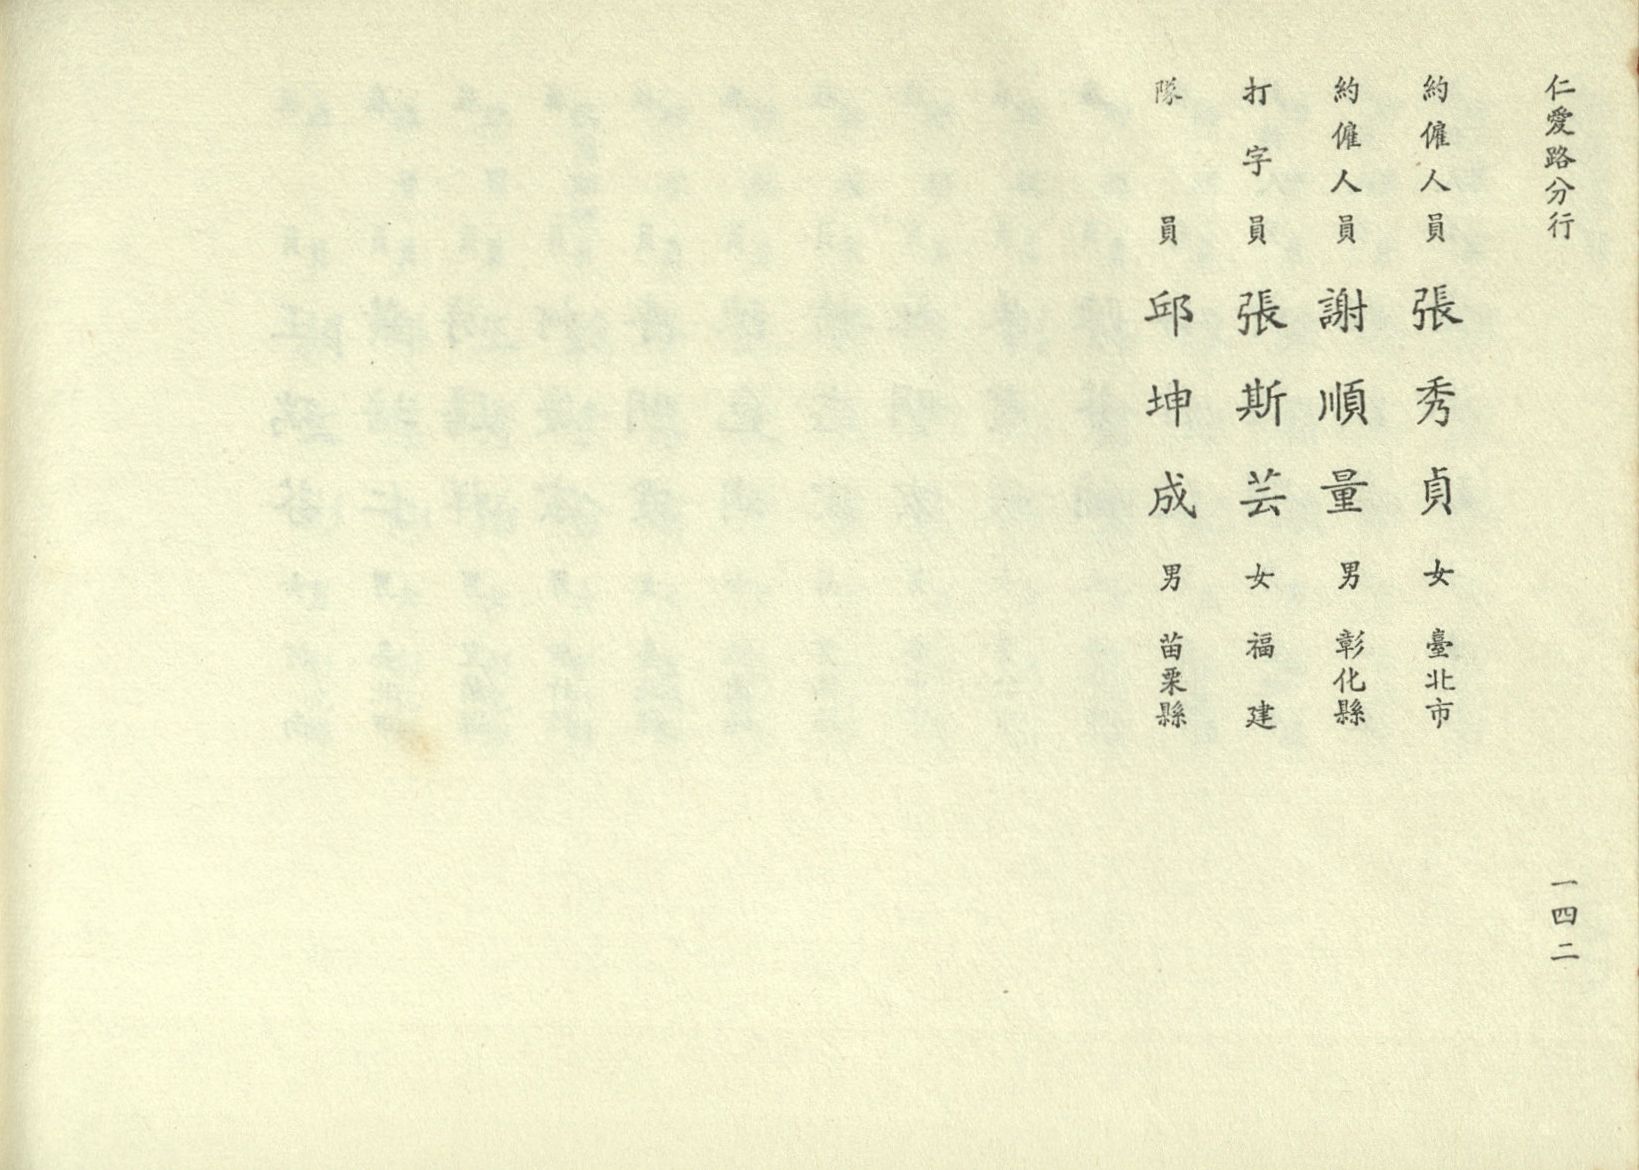 仁愛路分行
約僱人員 張秀貞 女 臺北市
約僱人員 謝順量 男 彰化縣
打字員 張斯芸 女 福建
隊員 邱坤成 男 苗栗縣
一四二